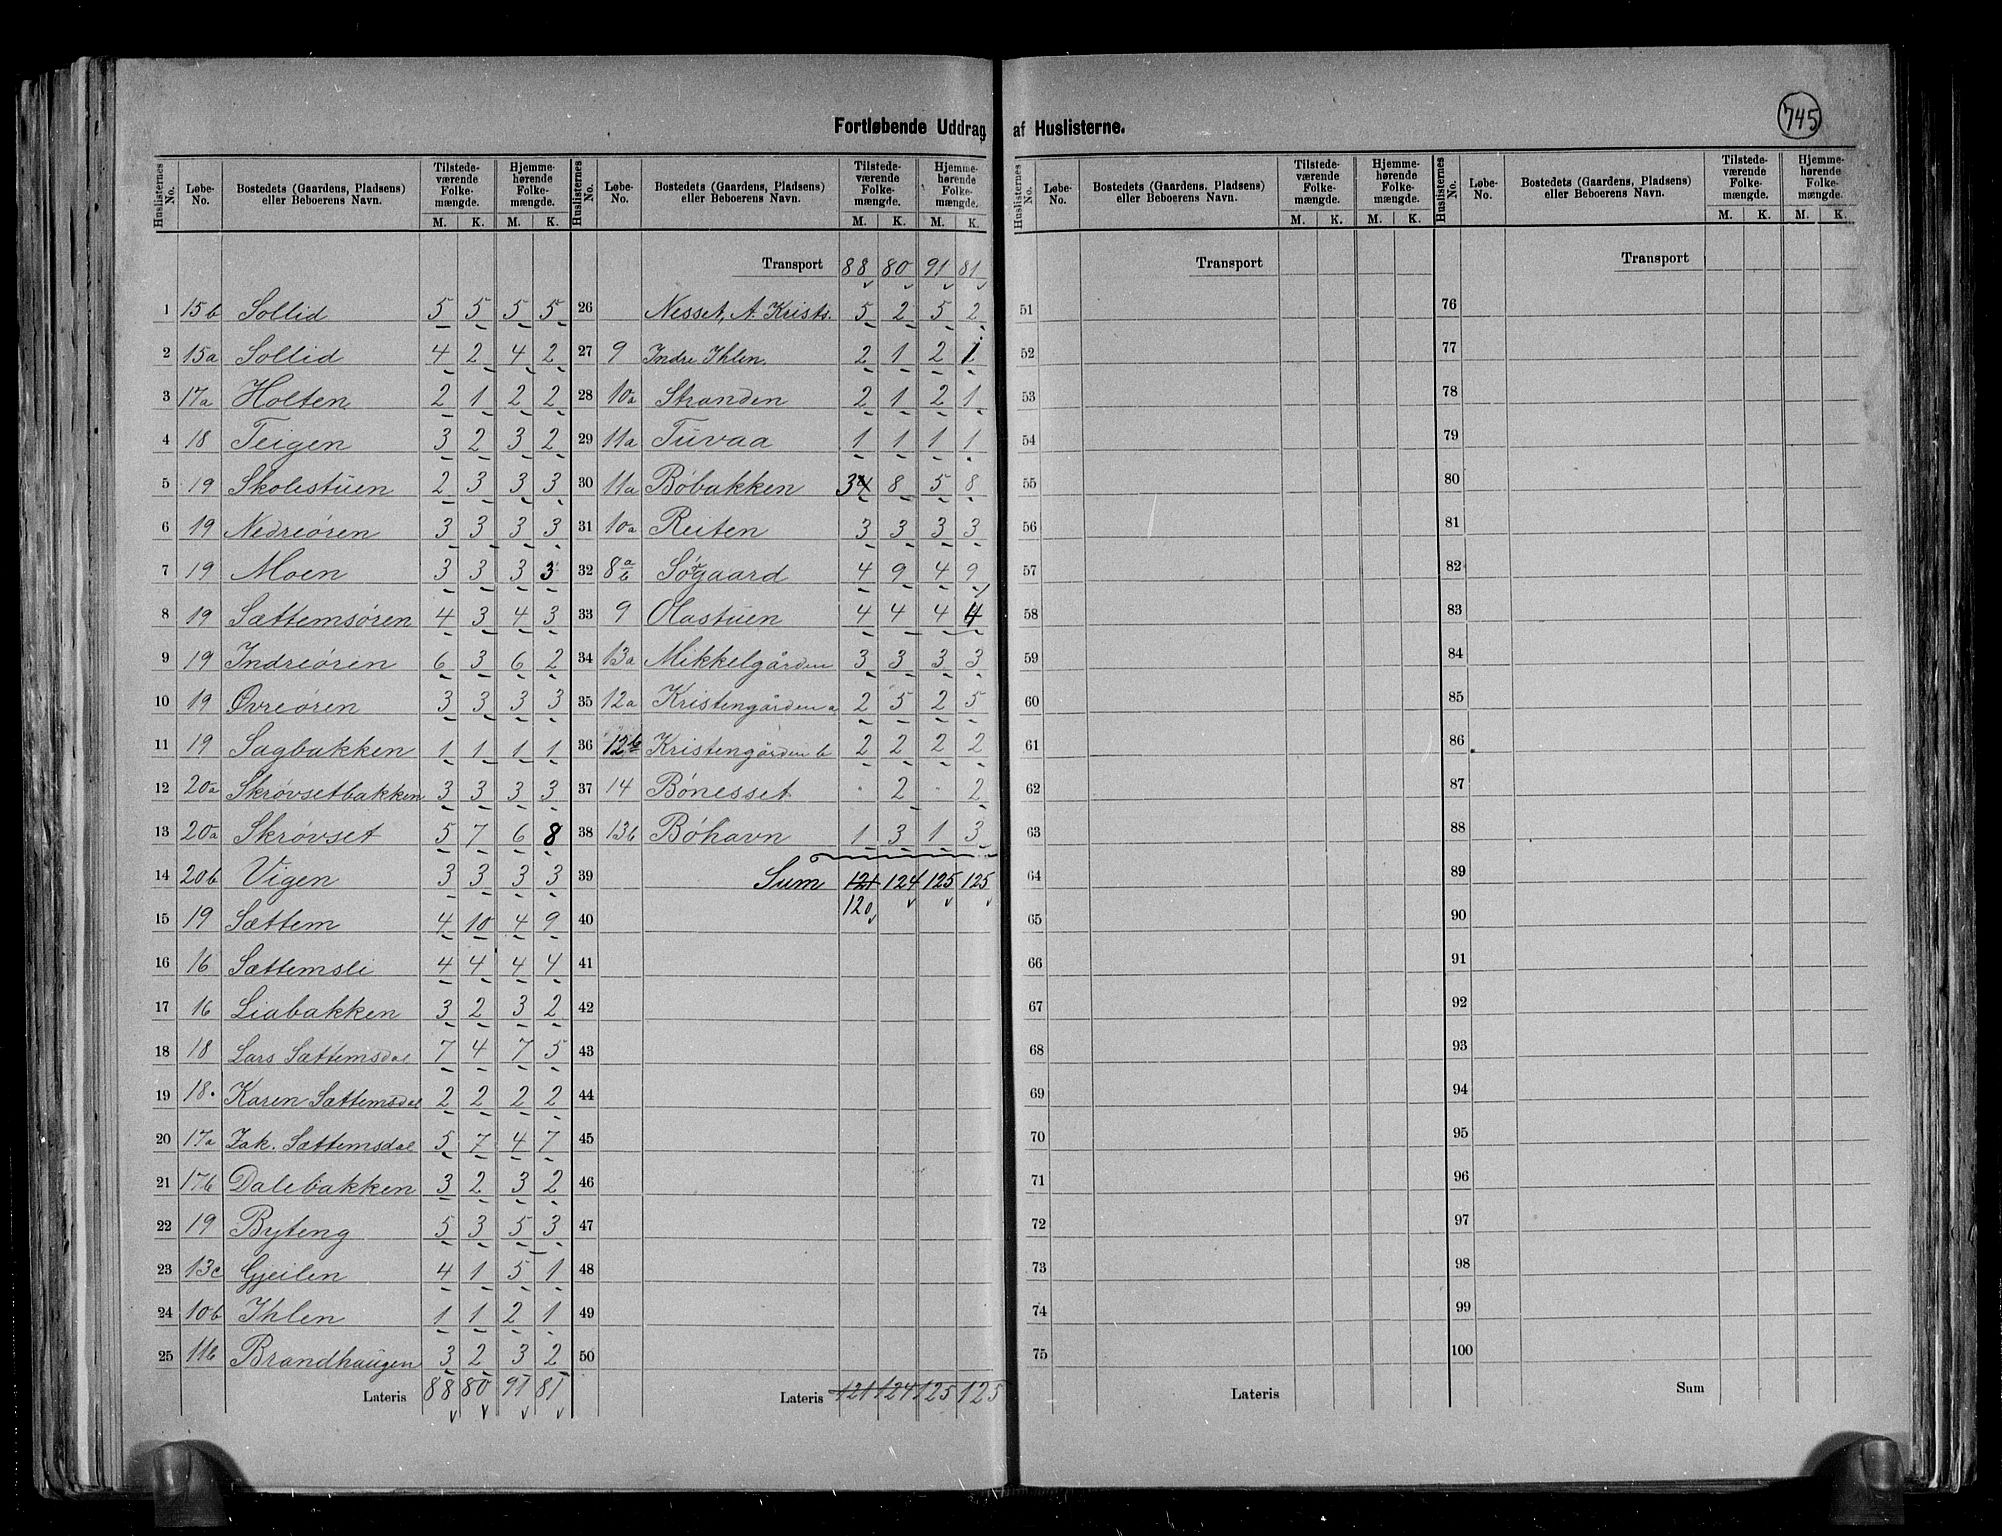 745
Fortløbende Uddrag af Huslisterne.
Huslisternes No. | Løbe-No. | Bostedets (Gaardens, Pladsen) eller Beboerens Navn. | Tilstedeværende Folkemængde. M. K. | Hjemmehørende Folkemængde. M. K.
1 15b Sollid 5 5 5 5
2 15a Sollid 4 2 4 2
3 17a Holten 2 1 2 2
4 18 Teigen 3 2 3 2
5 19 Skolestuen 2 3 3 3
6 19 Nedreøren 3 3 3 3
7 19 Moen 3 3 3 3
8 19 Sættemsøren 4 3 4 3
9 19 Indreøren 6 3 6 2
10 19 Øvreøren 3 3 3 3
11 19 Sagbakken 1 1 1 1
12 20a Skrøvsetbakken 3 3 3 3
13 20a Skrøvset 5 7 6 8
14 20b Vigen 3 3 3 3
15 19 Sættem 4 10 4 9
16 16 Sættemsli 4 4 4 4
17 16 Liabakken 3 2 3 2
18 18 Lars Sættemsdal 7 4 7 5
19 18. Karen Sættemsdal 2 2 2 2
20 17a Zak. Sættemsdal 5 7 4 7
21 17b Dalebakken 3 2 3 2
22 19 Byteng 5 3 5 3
23 13c Gjeilen 4 1 5 1
24 10b Ihlen 1 1 2 1
25 11b Brandhaugen 3 2 3 2
Lateris 88 80 91 81
Huslisternes No. | Løbe-No. | Bostedets (Gaardens, Pladsens) eller Beboerens Navn. | Tilstedeværende Folkemængde. M. K. | Hjemmehørende Folkemængde. M. K.
Transport 88 80 91 81
26 Nesset, A. Krists. 5 2 5 2
27 9 Indre Ihlen. 2 1 2 1
28 10a Stranden 2 1 2 1
29 11a Tuvaa 1 1 1 1
30 11a Bøbakken 3 4 8 5 8
31 10a Reiten 3 3 3 3
32 8 a/b Søgaard 4 9 4 9
33 9 Olastuen 4 4 4 4
34 13a Mikkelgården 3 3 3 3
35 12a Kristengården a 2 5 2 5
36 12b Kristengården b 2 2 2 2
37 14 Bønesset · 2 · 2
38 13b Bøhavn 1 3 1 3
39 Sum 121 124 125 125
40 120
41
42
43
44
45
46
47
48
49
50
Lateris 121 124 125 125
Huslisternes No. | Løbe-No. | Bostedets (Gaardens, Pladsens) eller Beboerens Navn. | Tilstedeværende Folkemængde. M. K. | Hjemmehørende Folkemængde. M. K.
Transport
51
52
53
54
55
56
57
58
59
60
61
62
63
64
65
66
67
68
69
70
71
72
73
74
75
Lateris
Huslisternes No. | Løbe-No. | Bostedets (Gaardens, Pladsens) eller Beboerens Navn. | Tilstedeværende Folkemængde. M. K. | Hjemmehørende Folkemængde. M. K.
Transport
76
77
78
79
80
81
82
83
84
85
86
87
88
89
90
91
92
93
94
95
96
97
98
99
100
Sum